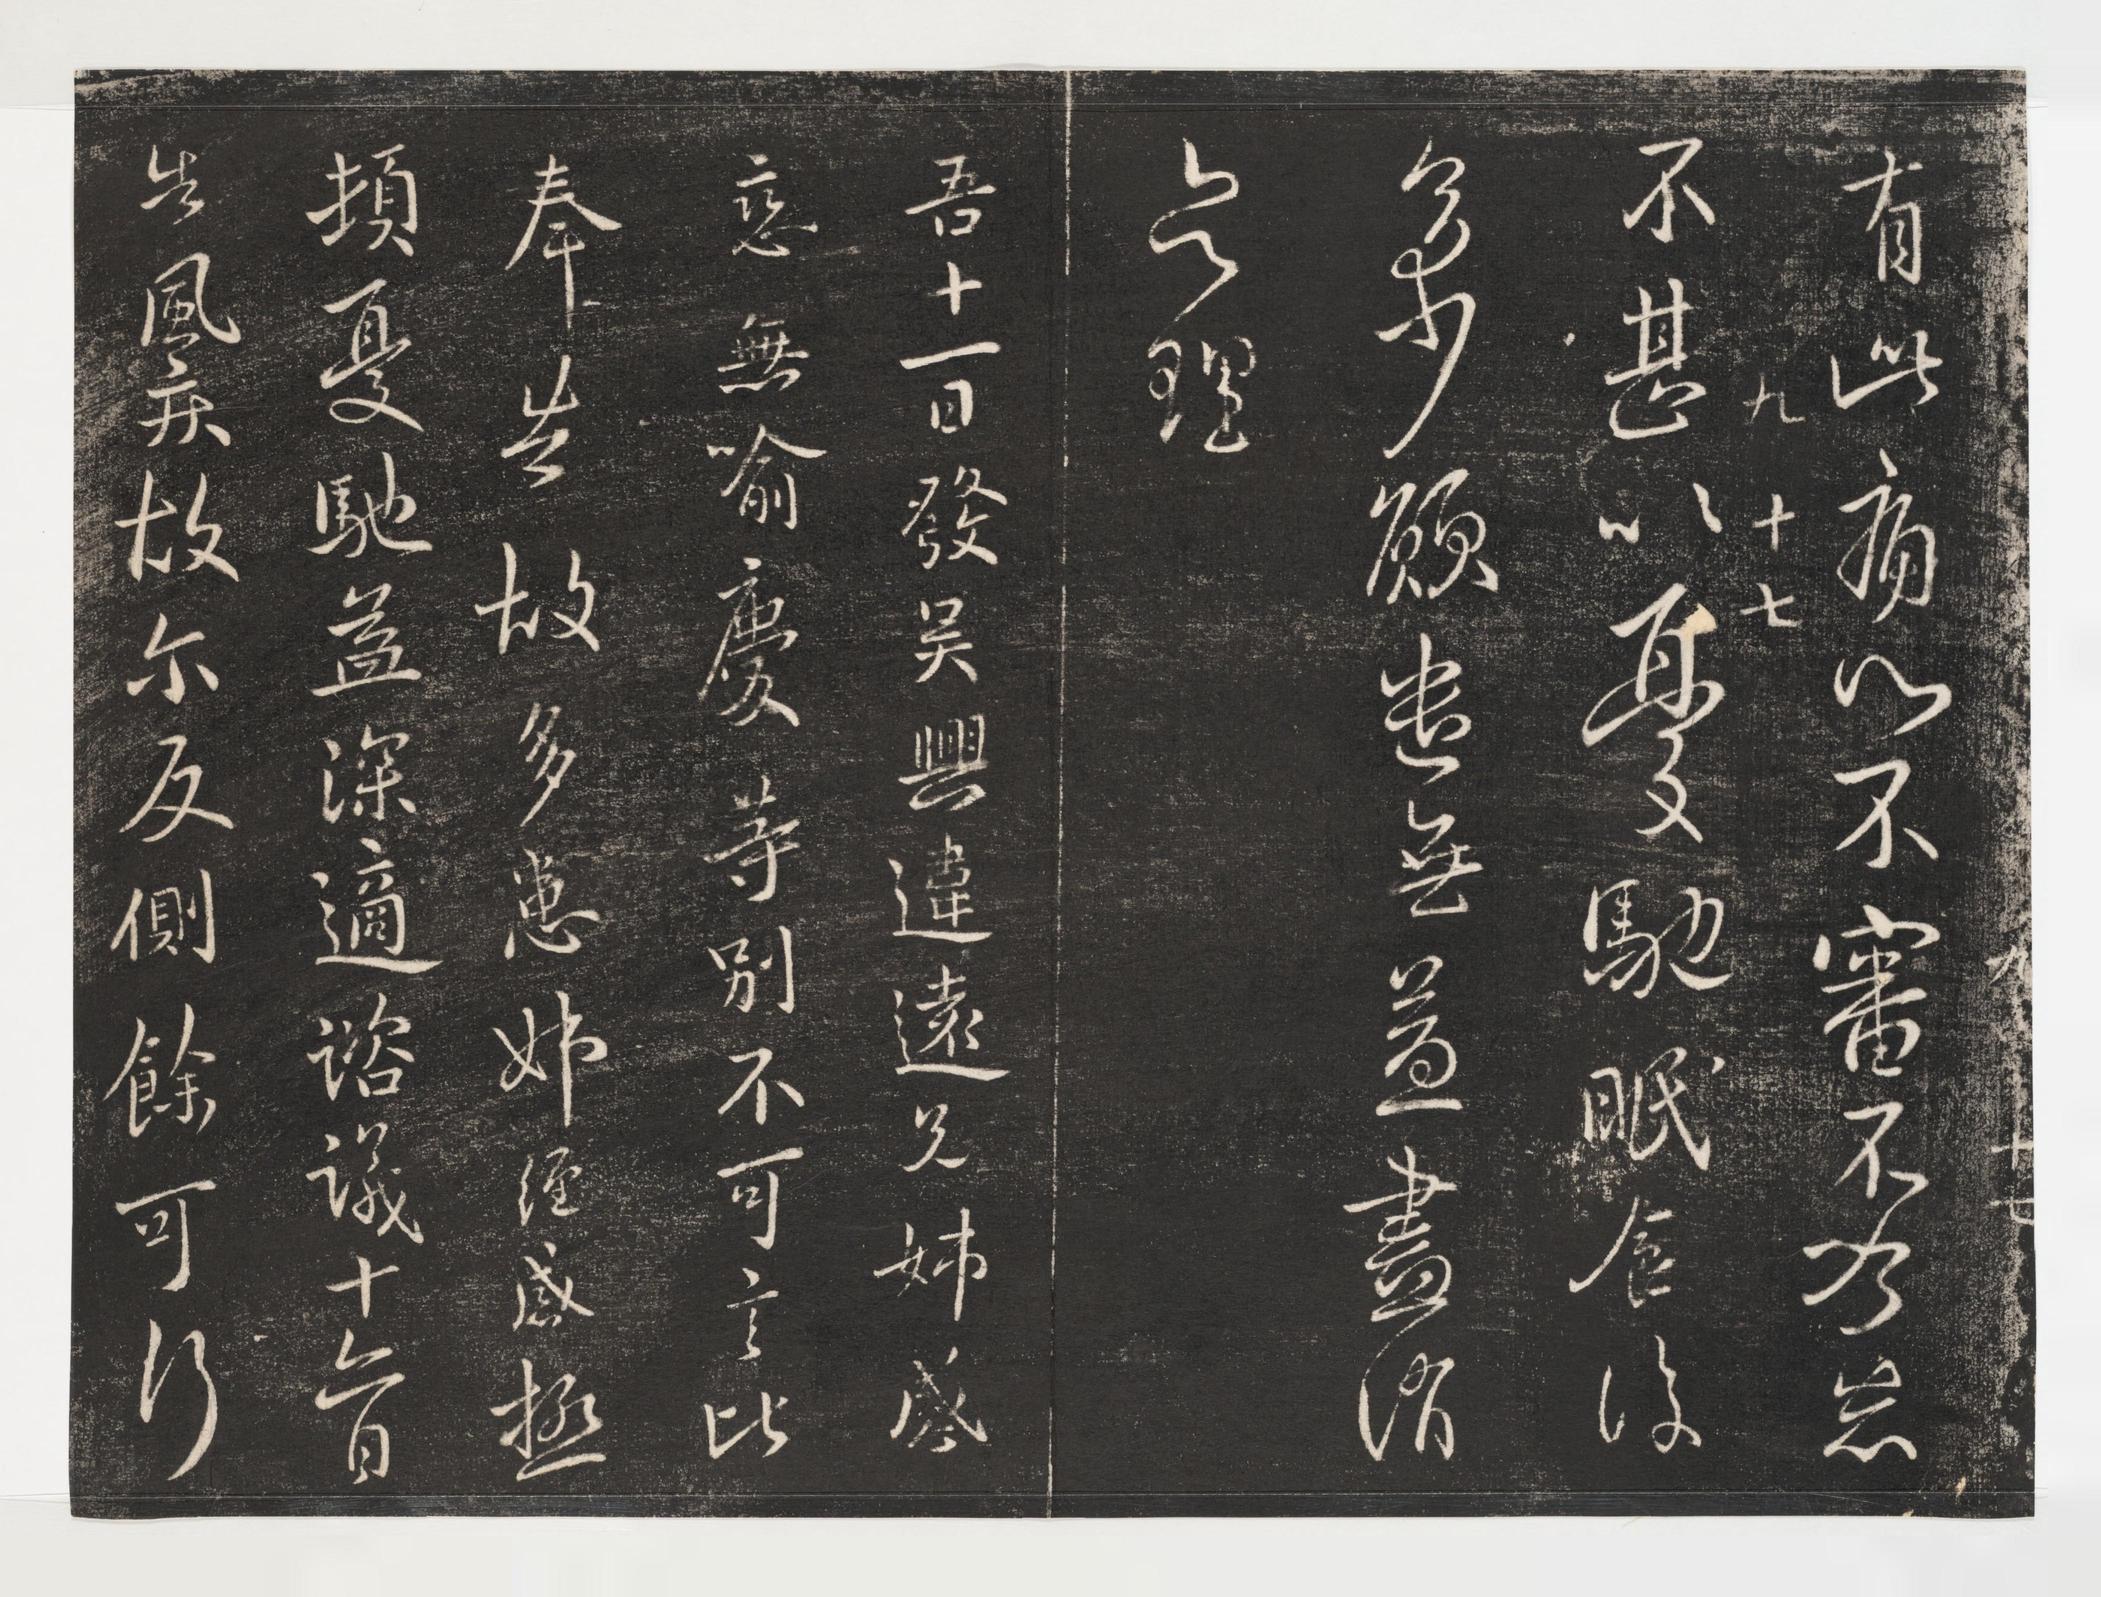 有此痛以不審不勿忘
九 十七
不甚以憂馳眠食後
多少願盡無益盡消
息理
吾十一日發吳興違遠兄姊感
戀無喻慶等別不可言比
奉告故多患姊經感極
頓憂馳益深適諮議十六日
告風疾故尓反側餘可行
九
十七